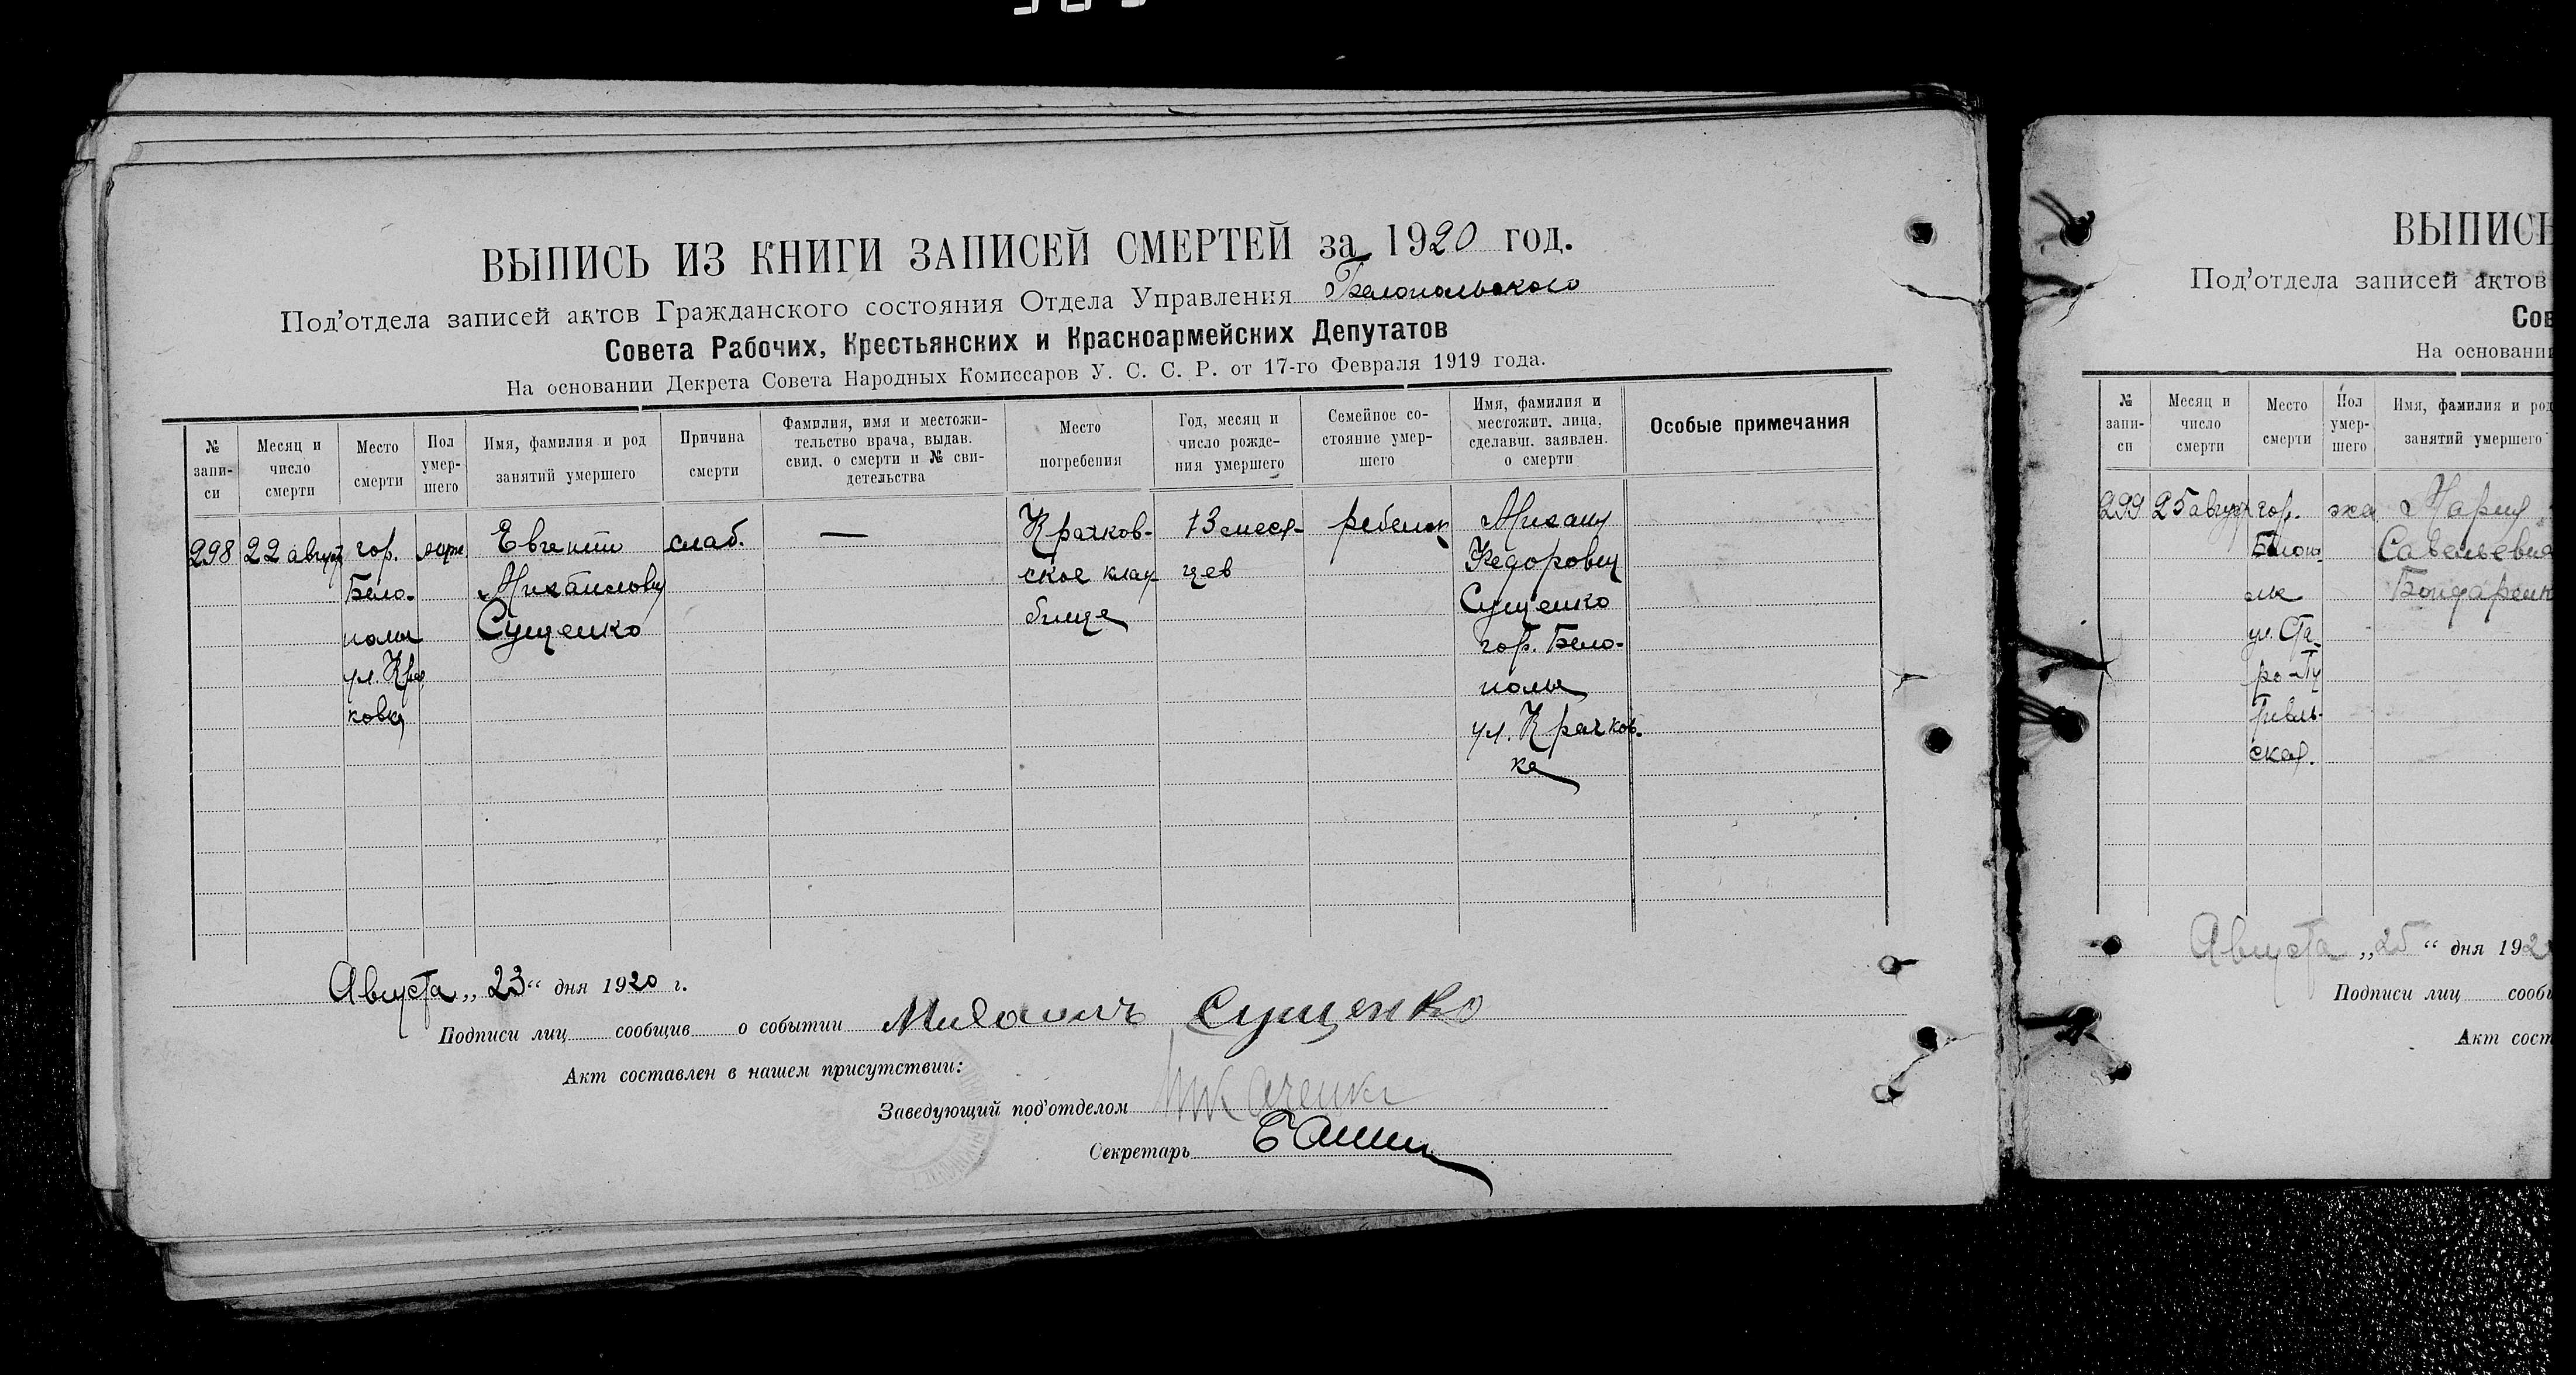 ВЫПИСЬ ИЗ КНИГИ ЗАПИСЕЙ СМЕРТЕЙ за 1920 год.
Под'отдела записей актов Гражданского состояния Отдела Управления Белопольского
Совета Рабочих, Крестьянских и Красноармейских Депутатов
На основании Декрета Совета Народных Комиссаров У. С. С. Р. от 17-го Февраля 1919 года.
№ запи-
си
Месяц и
число
смерти
Место
смерти
Пол
умер-
шего
Имя, фамилия и род
занятий умершего
Причина
смерти
Фамилия, имя и местожи-
тельство врача, выдав.
свид. о смерти и № сви-
детельства
Место
погребения
Год, месяц и
число рожде-
ния умершего
Семейное со-
стояние умер-
шего
Имя, фамилия и
местожит. лица,
сделавш. заявлен.
о смерти
Особые примечания
298
22 август
гор.
Бело-
полье
ул. Кра
ковка
Евгений
Михайлович
Сущенко
слаб.
—
Крачков-
ское клад-
бище
13 меся-
цев
ребенок
Михаил
Федорович
Сущенко
гор. Бело-
полье
ул. Крачков-
ка
Августа „23“ дня 1920 г.
Подписи лиц сообщив о событии Михаилъ Сущенко
Акт составлен в нашем присутствии:
Заведующий под'отделом Ткаченко
Секретарь
ВЫПИСЬ
Под'отдела записей актов
Сов
На основании
№
запи-
си
Месяц и
число
смерти
Место
смерти
Пол
умер-
шего
Имя, фамилия и род
занятий умершего
299
25 август
гор.
Белопо-
лье
ул. Ста-
ро-Пу
тивль-
ская.
жен
Мария
Савельевна
Бондаренк
Августа „25“ дня 192
Подписи лиц сообщ
Акт сост